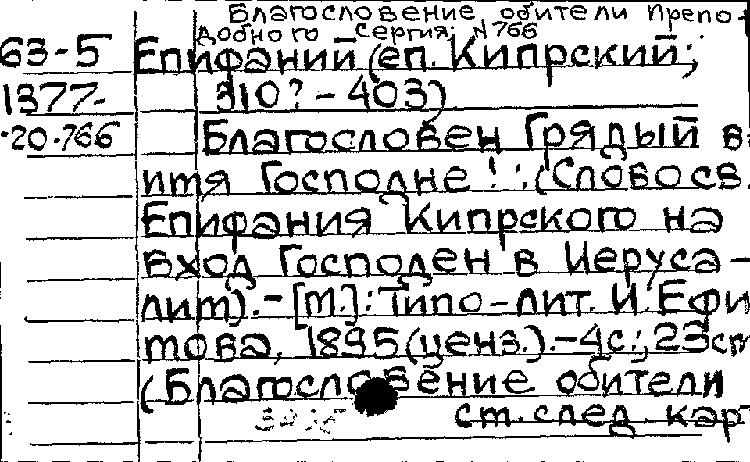 Благословение обители Препо-
добного Сергия; N766
63-5 Епифаний (еп. Кипрский;
1377- 310?-403)
20.766 Благословен Грядый в
имя Господне! : (Слово св.
Епифания Кипрского на
вход Господен в Иеруса-
лим). - [М.]: Типо-лит. И. Ефи
мова, 1895 (ценз.). - 4с.; 23см
(Благословение обители
ст. след. карт